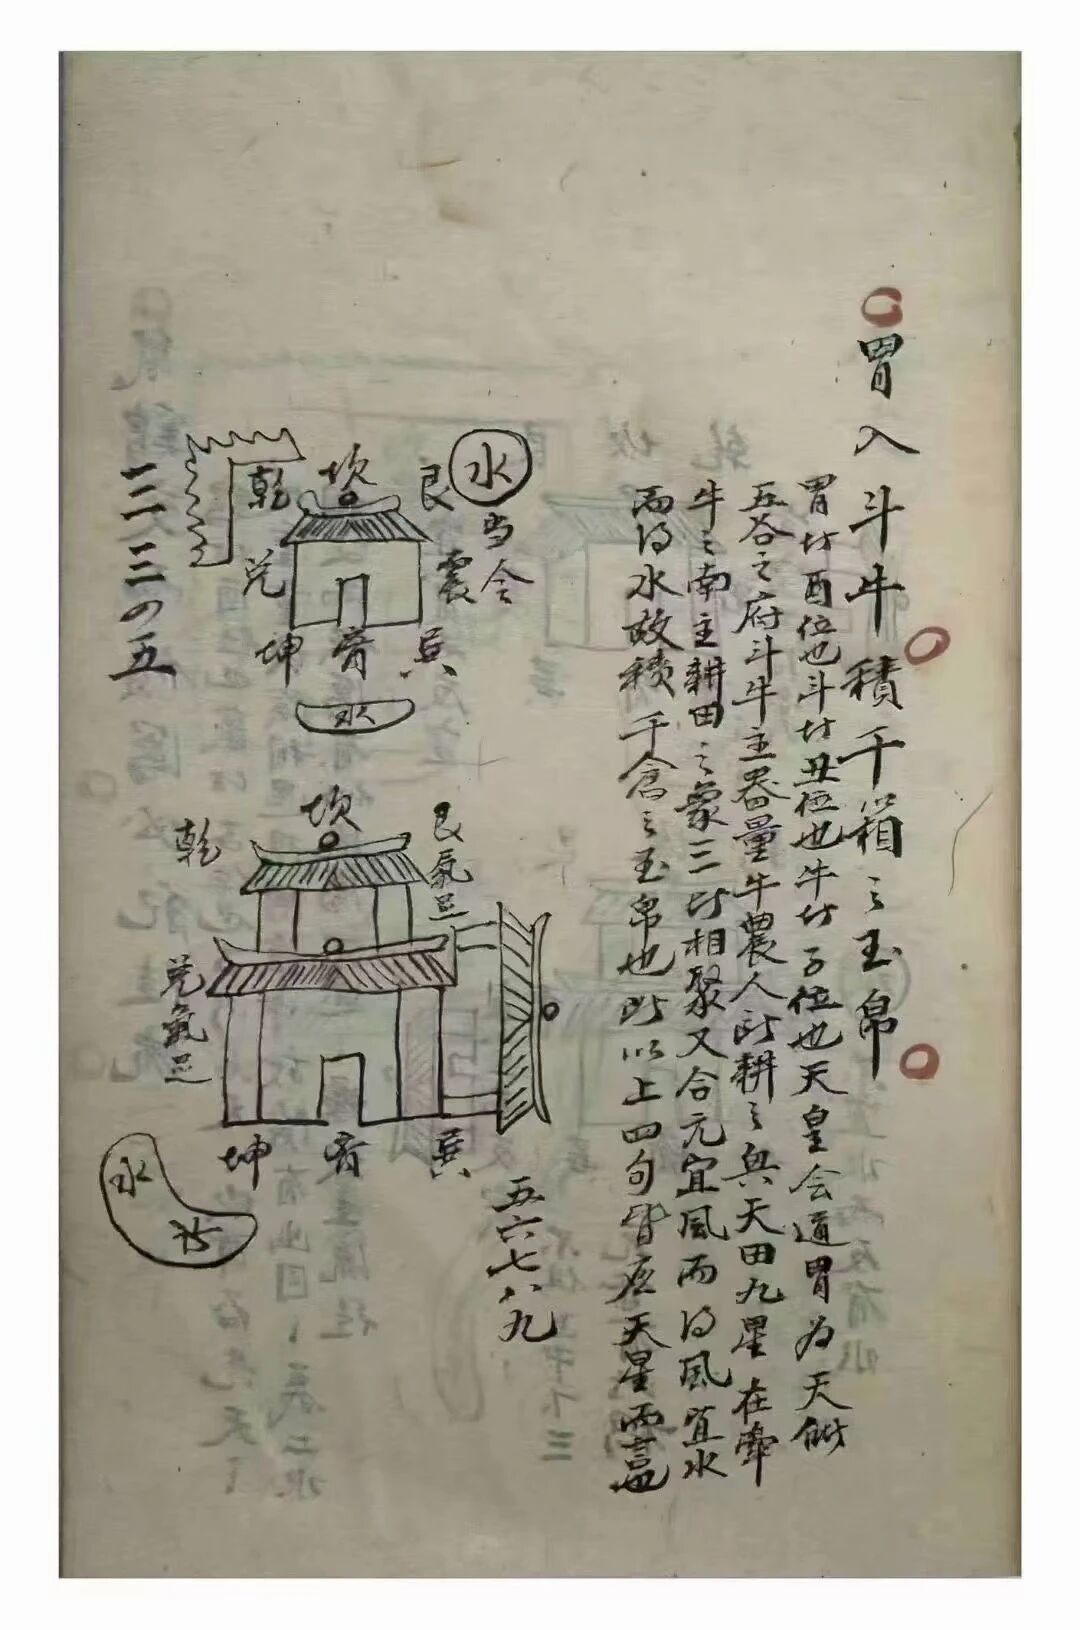 胃入斗牛積千箱之玉帛
胃坿酉位也斗坿丑位也牛坿子位也天皇会道胃为天倉
五谷之府斗牛主器量牛農人所耕之與天田九星在牽
牛之南主耕田之象三坿相聚又合元宜風而得風宜水
而得水故積千倉之玉帛也所以上四句皆应天星而言
水
乾 坎 艮
当令
兑 震
坤 离 巽
水
一二三四五
乾 坎 艮氣足
兑氣足
坤 离 巽
水
五六七八九